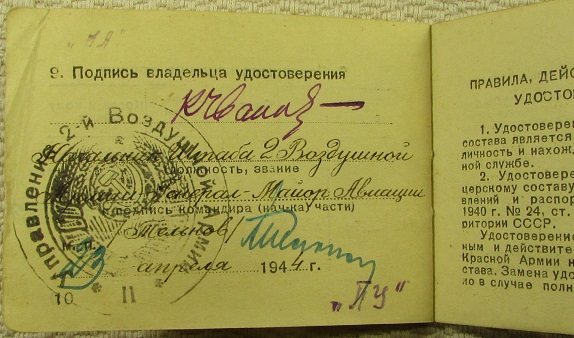 "ПЯ"
9. Подпись владельца удостоверения
Начальник Штаба 2 Воздушной
(должность, звание
Армии Генерал-Майор Авиации
(подпись командира (нач-ка) части)
Тельнов/
М. П.
23 апреля 1944 г.
10
"ПУ"
Управление 2-й Воздушной Армии
* II *
ПРАВИЛА, ДЕЙС
УДОСТО
1. Удостоверен
состава является
личность и нахож
ной службе.
2. Удостовере
церскому составу
влений и распор
1940 г. № 24, ст.
ритории СССР.
Удостоверение
ным и действите
Красной Армии н
става. Замена удос
ло в случае полн